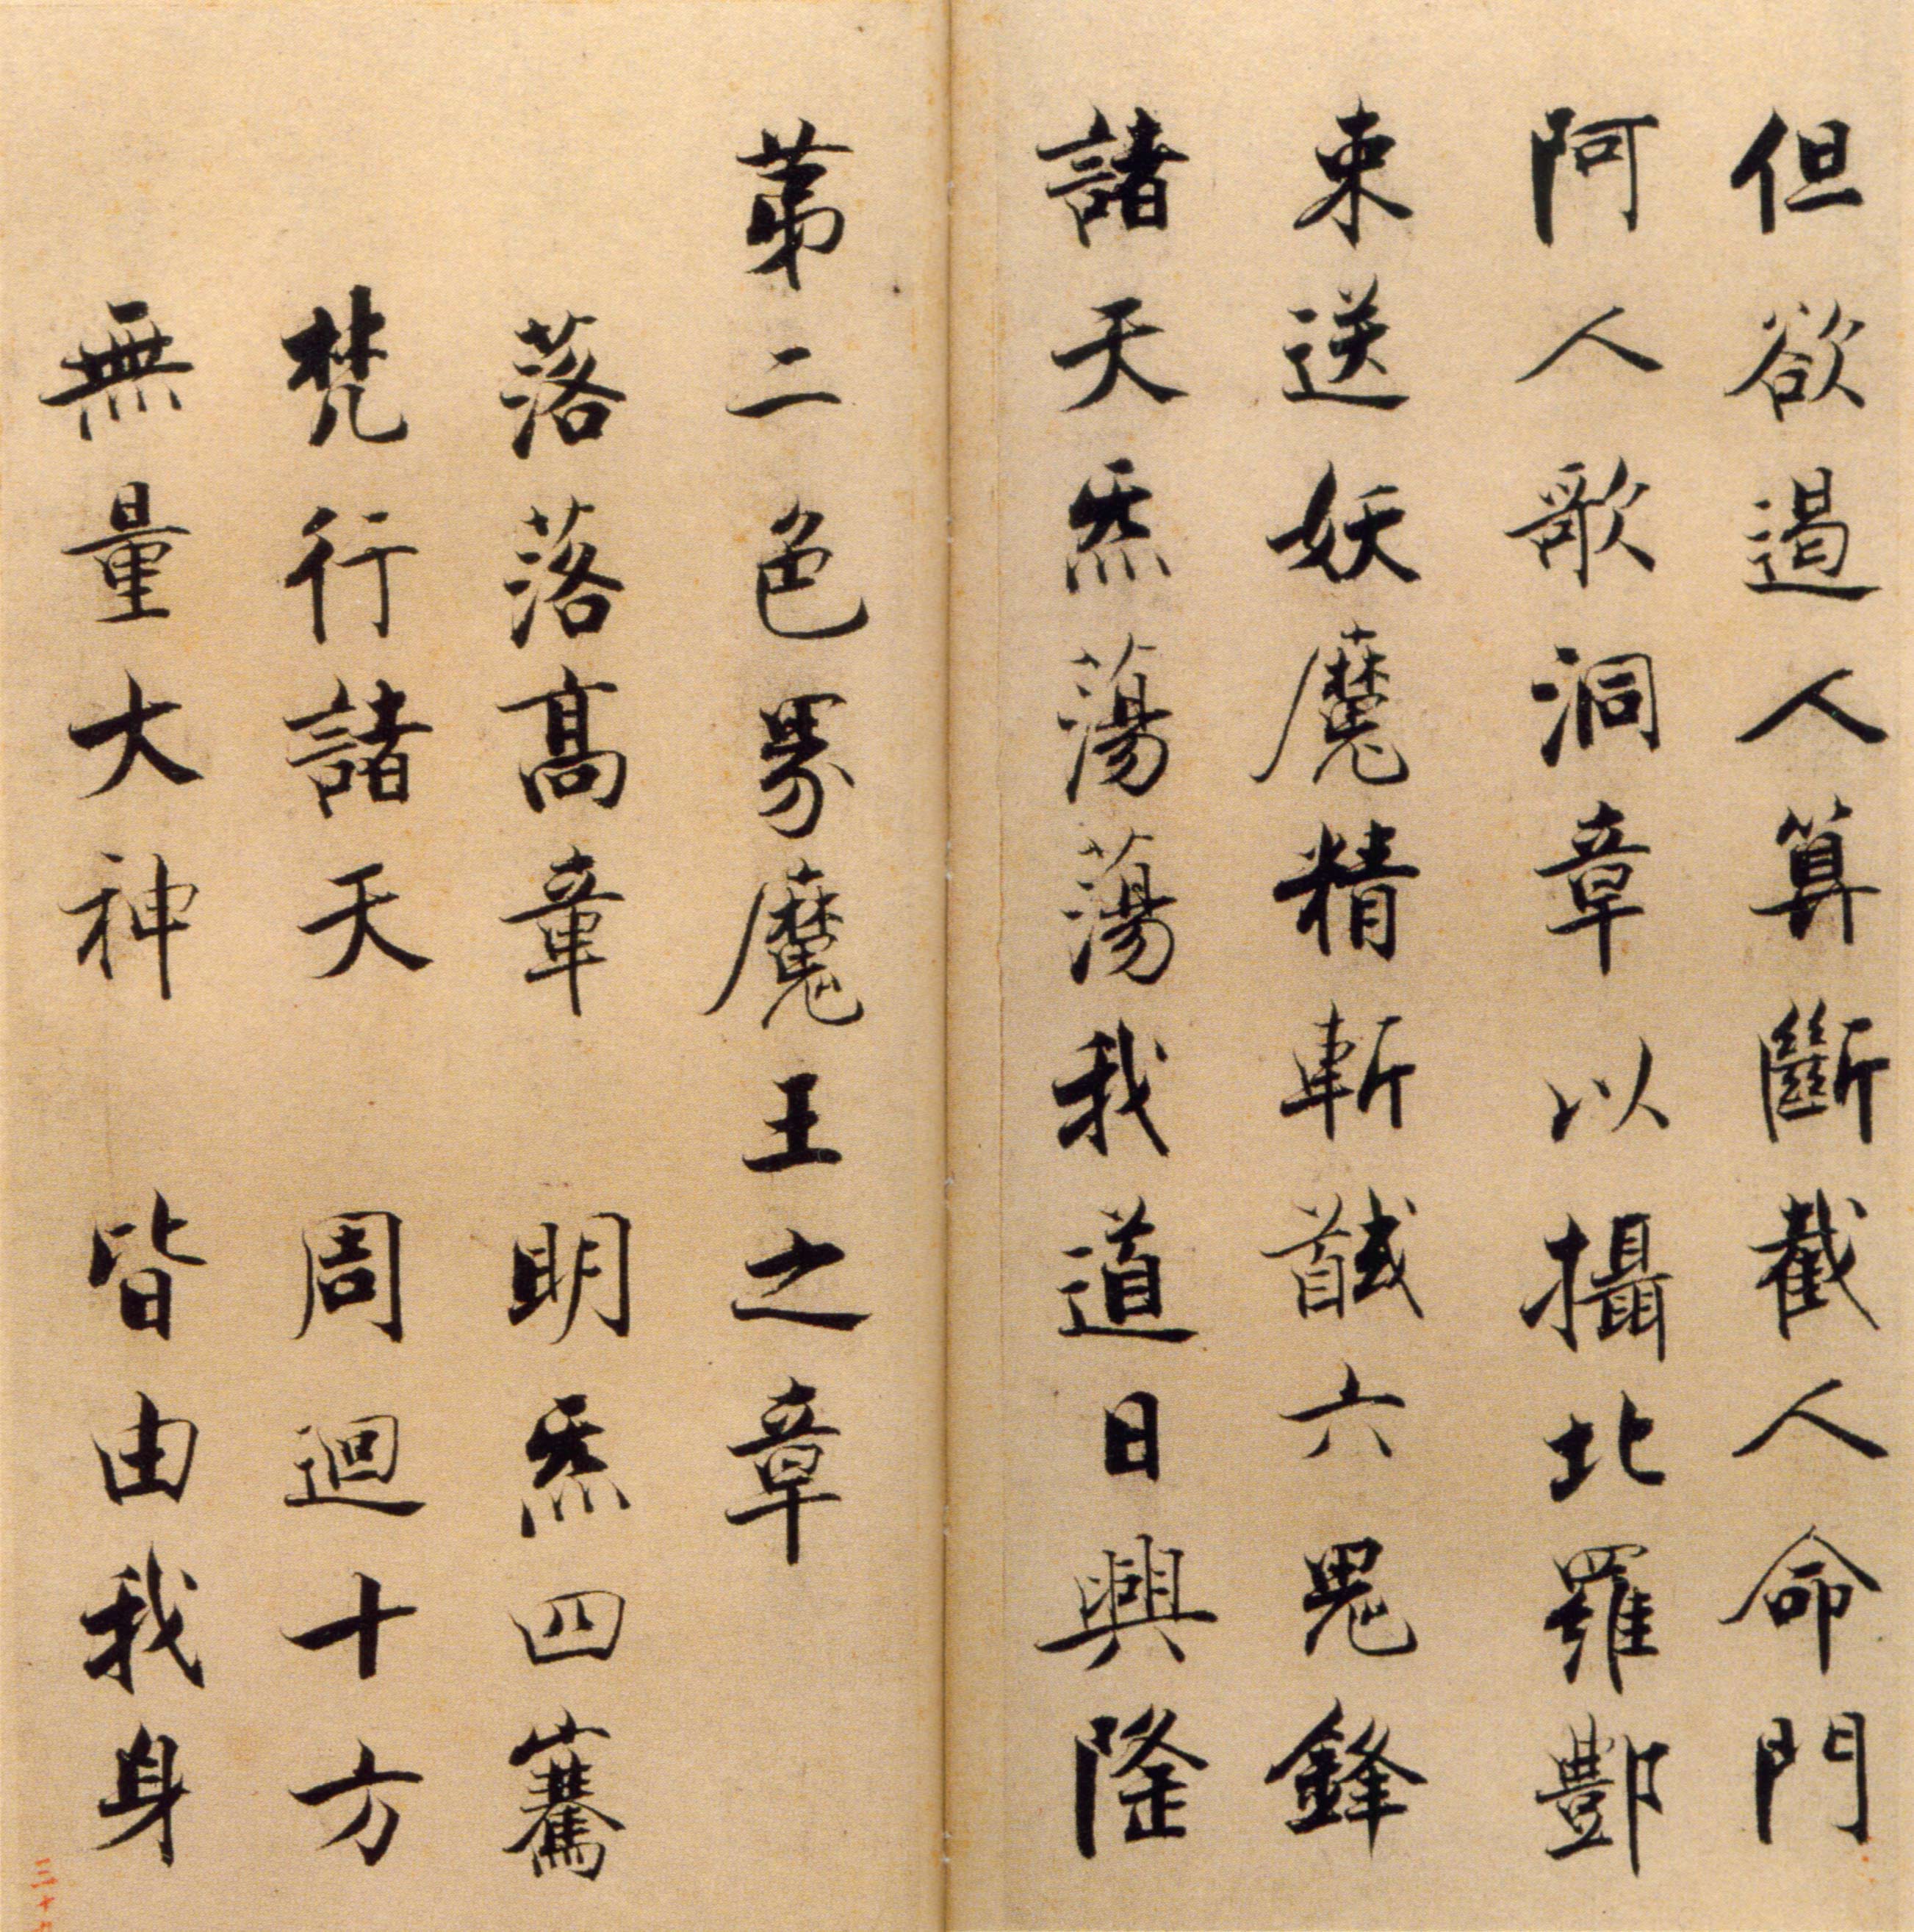 但欲遏人算斷截人命門
阿人歌洞章以攝北羅酆
束送妖魔精斬馘六鬼鋒
諸天炁蕩蕩我道日興隆
苐二色界魔王之章
落落高章 明炁四騫
梵行諸天 周迴十方
無量大神 皆由我身
三十